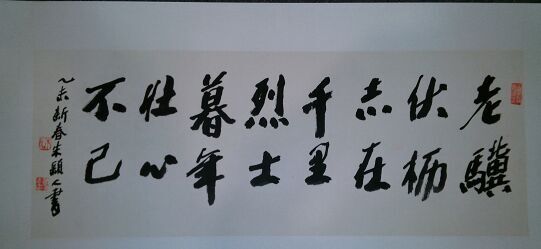 老驥
伏枥
志在
千里
烈士
暮年
壮心
不已
乙未新春